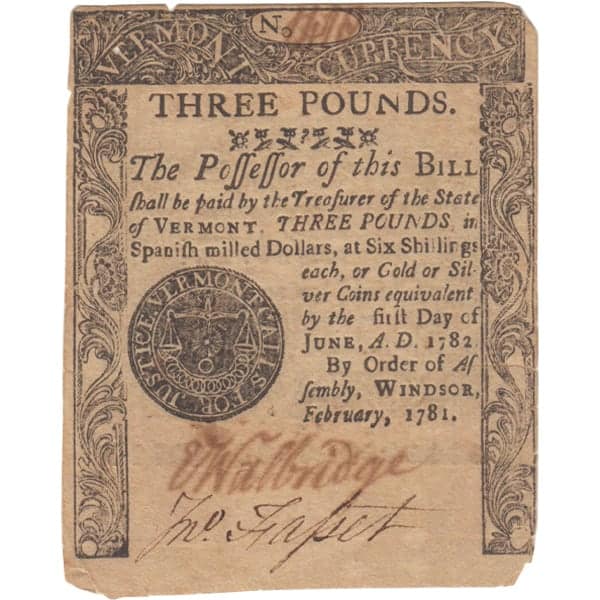 VERMONT CURRENCY
No.
THREE POUNDS.
The Poſſeſſor of this BILL
ſhall be paid by the Treaſurer of the State
of VERMONT, THREE POUNDS, in
Spaniſh milled Dollars, at Six Shillings
each, or Gold or Sil-
ver Coins equivalent
by the firſt Day of
JUNE, A. D. 1782.
By Order of Aſ
ſembly, WINDSOR,
February, 1781.
VERMONT CALLS FOR JUSTICE.
E Walbridge
Jno. Fasset